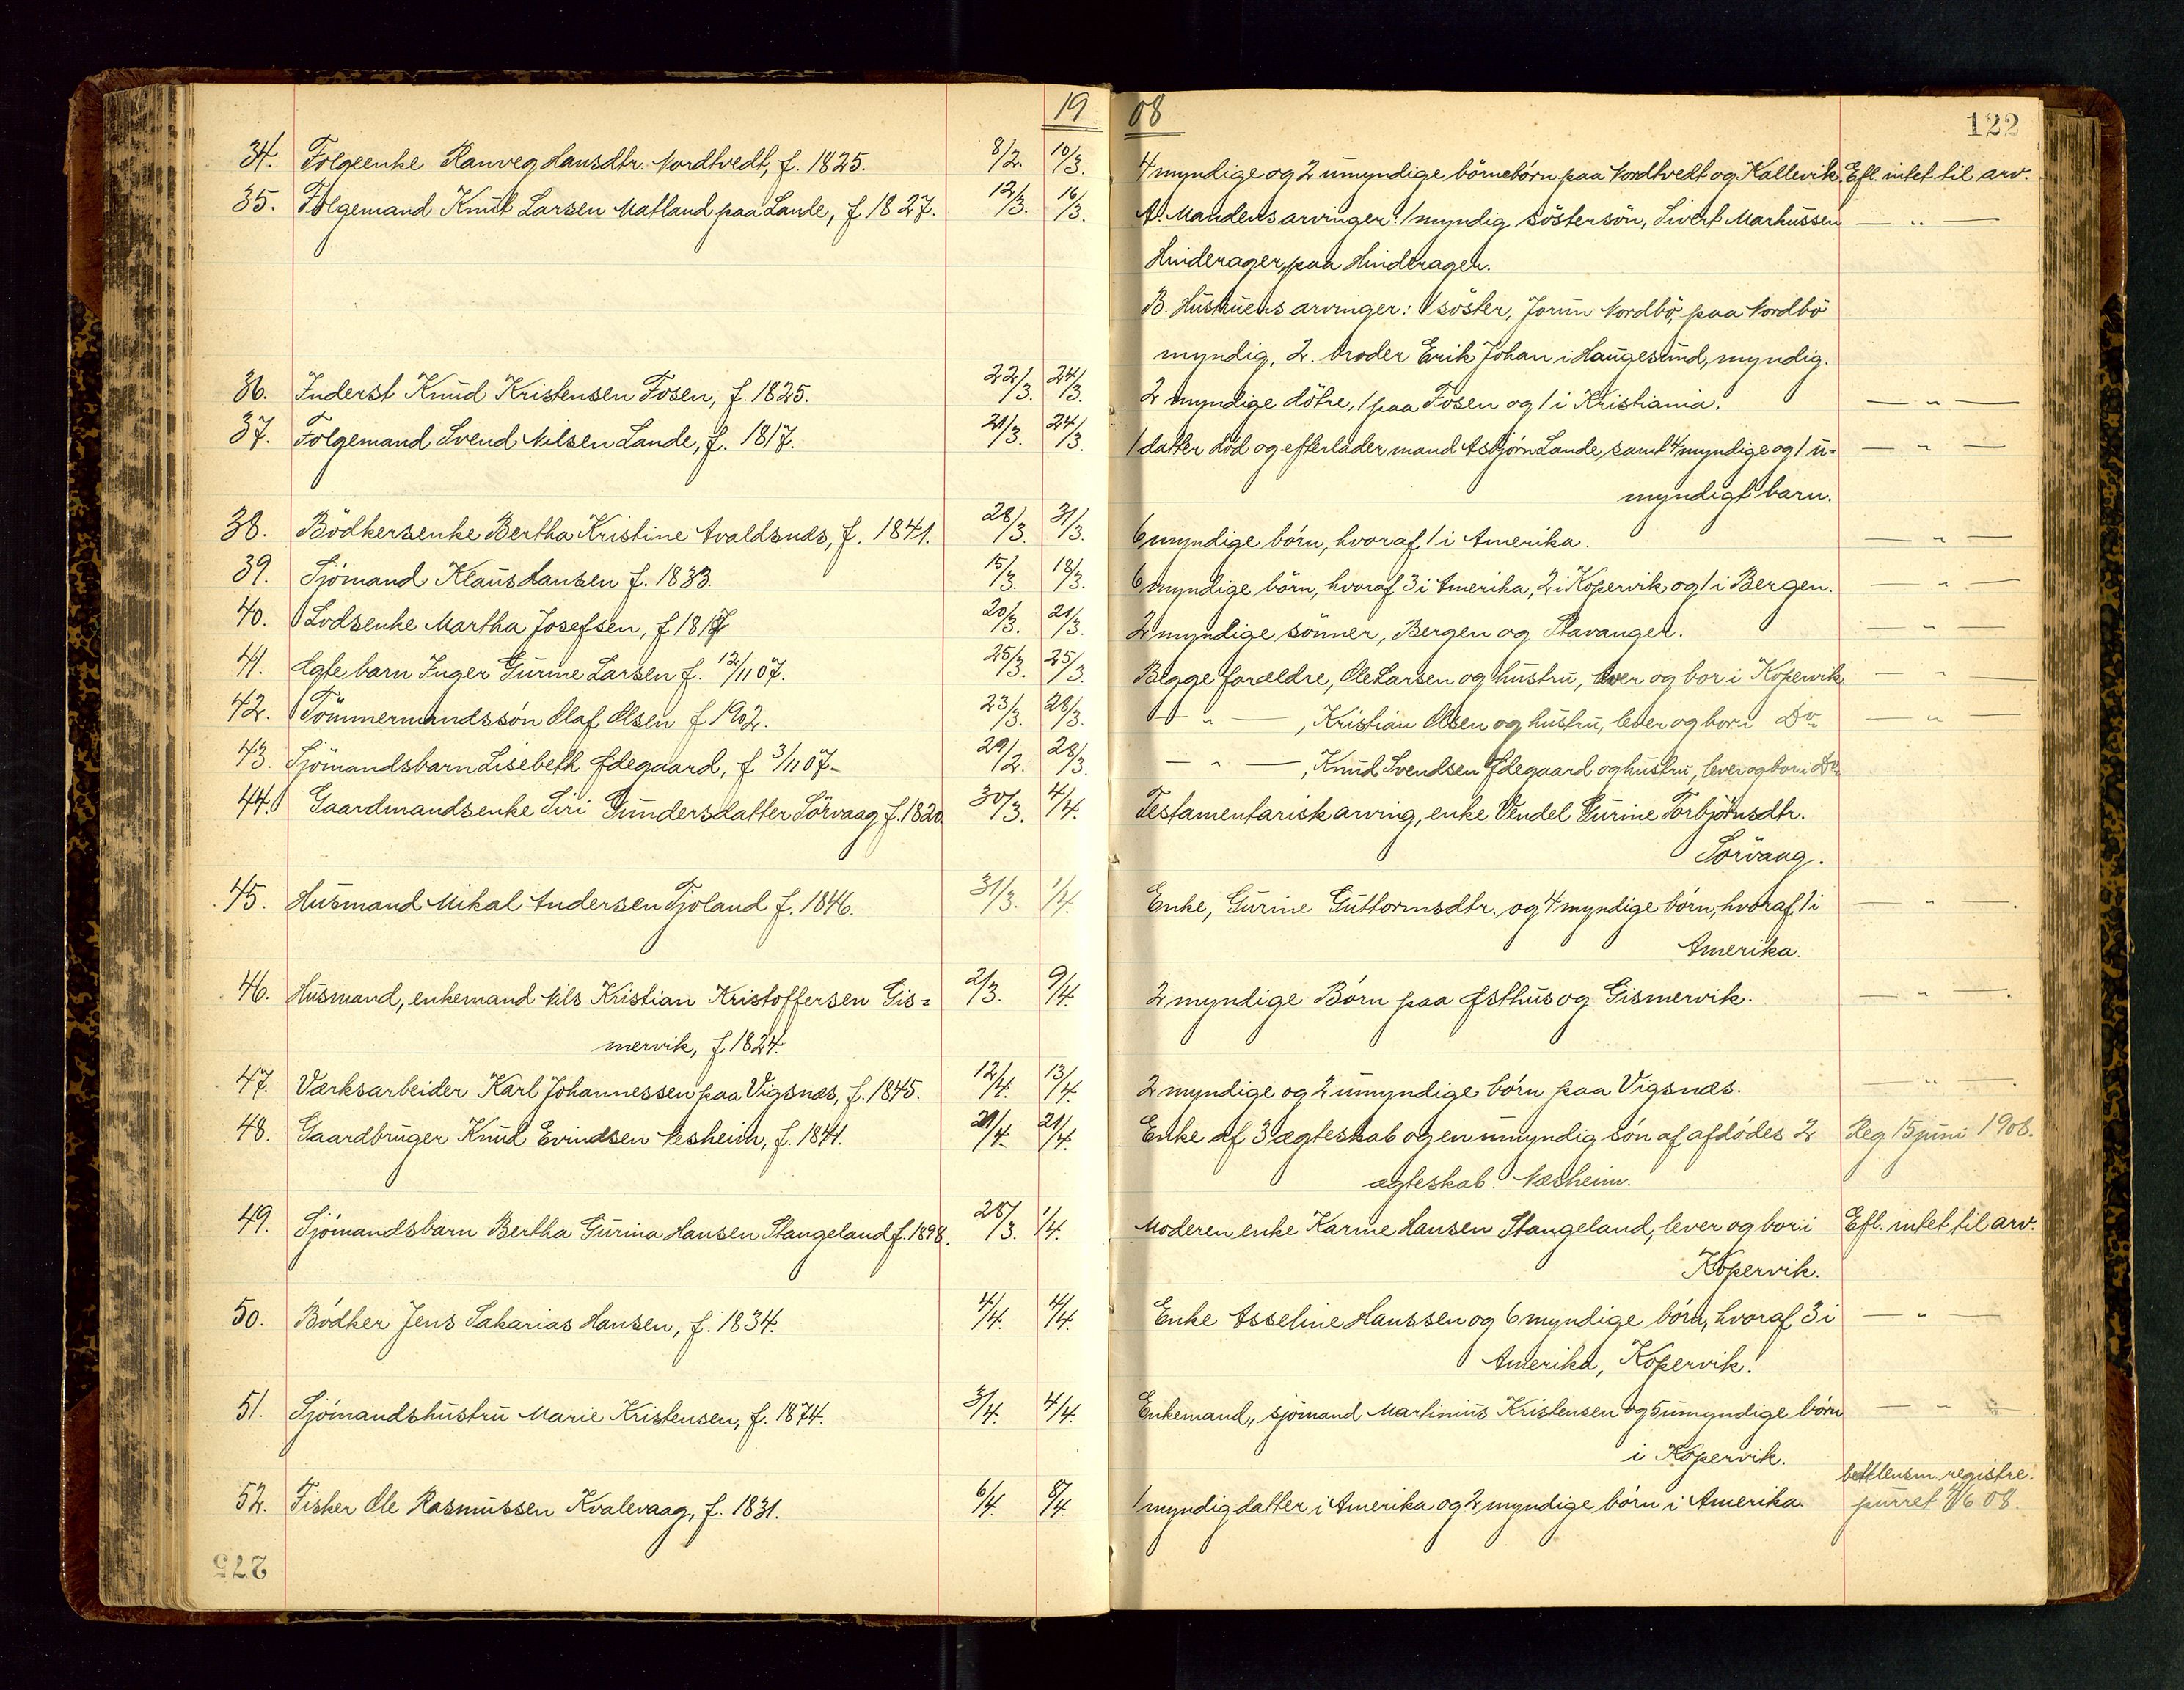 19 08
122
34. Folgeenke Ranveg Hansdtr. Nordtvedt, f. 1825. 8/2. 10/3. 4 myndige og 2 umyndige börnebörn paa Nordtvedt og Kallevik. Efl. intet til arv.
35. Folgemand Knut Larsen Matland paa Lande, f 1827. 12/3. 16/3. A. Mandens arvinger: 1 myndig söstersön, Sivert Markussen — " —
Hinderager, paa Hinderager.
B. Hustruens arvinger: 1 söster, Jorun Nordbö, paa Nordbö
myndig, 2. broder Erik Johan i Haugesund, myndig.
36. Inderst Knud Kristensen Fosen, f. 1825. 22/3. 24/3. 2 myndige dötre, 1 paa Fosen og 1 i Kristiania. — " —
37. Folgemand Svend Nilsen Lande, f. 1817. 21/3. 24/3. 1 datter död og efterlader mand Asbjörn Lande samt 4 myndige og 1 u= — " —
myndigt barn.
38. Bödkersenke Bertha Kristine Avaldsnæs, f. 1841. 28/3. 31/3. 6 myndige börn, hvoraf 1 i Amerika. — " —
39. Sjömand Klaus Hansen f. 1833. 15/3. 18/3. 6 myndige börn, hvoraf 3 i Amerika, 2 i Kopervik og 1 i Bergen. — " —
40. Lodsenke Martha Josefsen, f 1817 20/3. 21/3. 2 myndige sönner, Bergen og Stavanger. — " —
41. Ægte barn Inger Gurine Larsen f. 12/11 07. 25/3. 25/3. Begge forældre, Ole Larsen og hustru, lever og bor i Kopervik — " —
42. Tömmermandssön Olaf Olsen f 1902. 23/3. 28/3. — " —, Kristian Olsen og hustru, lever og bor i Do — " —
43. Sjömandsbarn Lisebeth Ødegaard, f 3/11 07- 29/2. 28/3. — " —, Knud Svendsen Ødegaard og hustru, lever og bor i Do
44. Gaardmandsenke Siri Gundersdatter Sörvaag f. 1820. 30/3. 4/4. Testamentarisk arving, enke Vendel Gurine Torbjörnsdtr.
Sörvaag.
45. Husmand Mikal Andersen Tjoland f. 1846. 31/3. 1/4. Enke, Gurine Guttormsdtr. og 4 myndige börn, hvoraf 1 i — " —.
Amerika.
46. Husmand, enkemand Nils Kristian Kristoffersen Gis= 2/3. 9/4. 2 myndige Börn paa Østhus og Gismervik. — " —.
mervik, f 1824.
47. Værksarbeider Karl Johannessen paa Vigsnæs, f. 1845. 12/4. 13/4. 2 myndige og 2 umyndige börn paa Vigsnæs. — " —.
48. Gaardbruger Knud Evindsen Nesheim, f. 1841. 20/4. 21/4. Enke af 3 ægteskab og en umyndig sön af afdödes 2 Reg 15 juni 1908.
ægteskab. Næsheim.
49. Sjömandsbarn Bertha Gurina Hansen Stangeland f. 1898. 28/3. 1/4. Moderen enke Karine Hansen Stangeland, lever og bor i Efl. intet til arv.
Kopervik.
50. Bödker Jens Sakarias Hansen, f. 1834. 4/4. 4/4. Enke Asseline Hanssen og 6 myndige börn, hvoraf 3 i — " —
Amerika, Kopervik.
51. Sjömandshustru Marie Kristensen, f. 1874. 3/4. 4/4. Enkemand, sjömand Martinius Kristensen og 5 umyndige börn — " —
i Kopervik.
52. Fisker Ole Rasmussen Kvalevaag, f. 1831. 6/4. 8/4. 1 myndig datter i Amerika og 2 myndige börn i Amerika. registre.
purret 4/6 08.
275